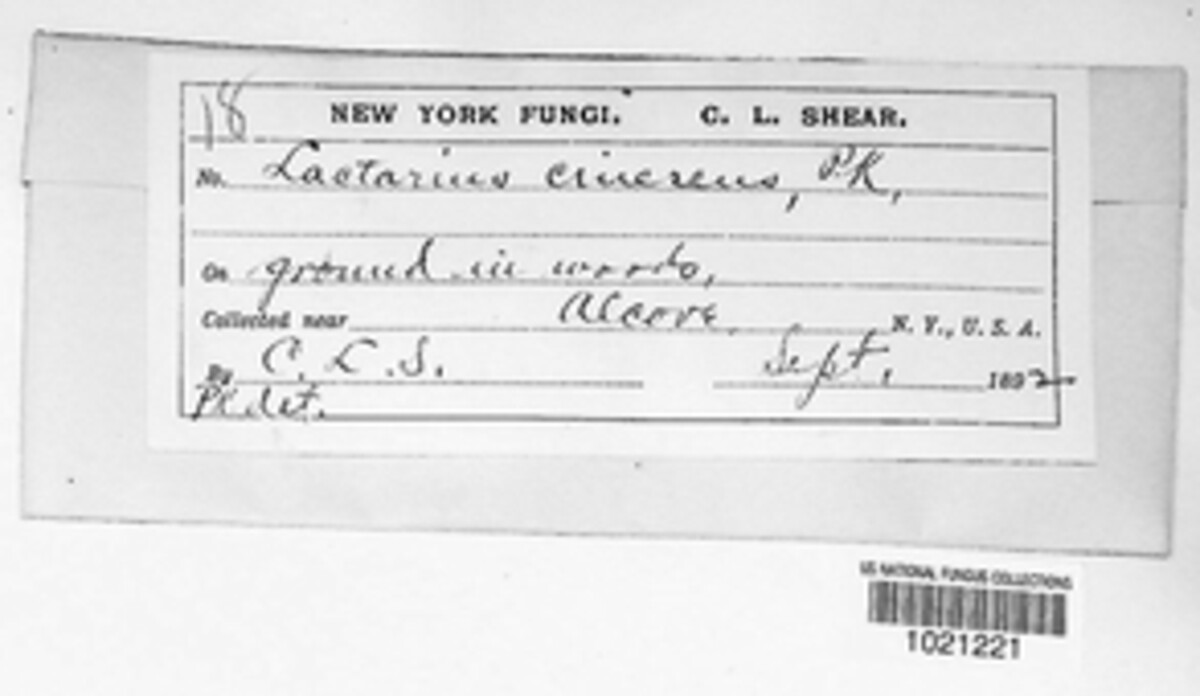 18
NEW YORK FUNGI. C. L. SHEAR.
No. Lactarius cinereus, Pk,
On ground in woods,
Collected near Alcove, N. Y., U. S. A.
By C. L. S. Sept. 1892
Pk det.
US NATIONAL FUNGUS COLLECTIONS
1021221